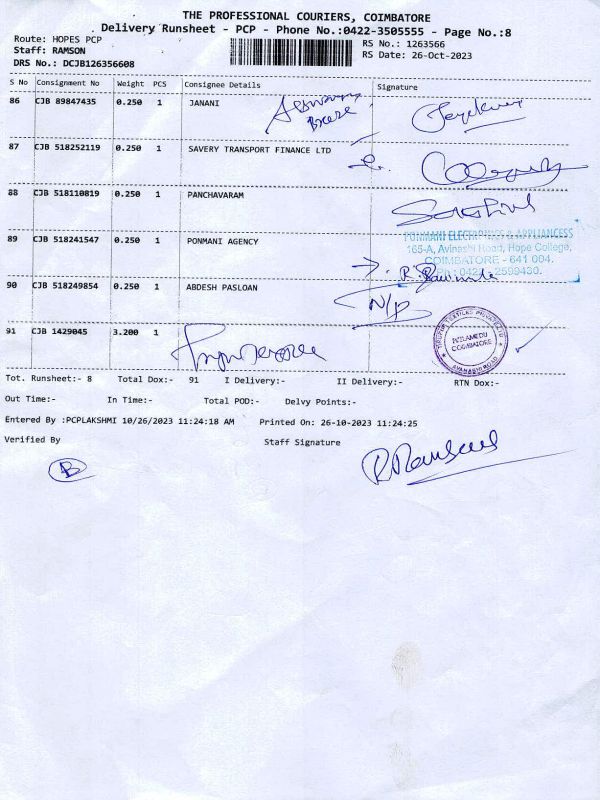 THE PROFESSIONAL COURIERS, COIMBATORE
Delivery Runsheet - PCP - Phone No.:0422-3505555 - Page No.:8
Route: HOPES PCP
RS No.: 1263566
Staff: RAMSON
RS Date: 26-Oct-2023
DRS No.: DCJB126356608
S No Consignment No Weight PCS Consignee Details Signature
86 CJB 89847435 0.250 1 JANANI
87 CJB 518252119 0.250 1 SAVERY TRANSPORT FINANCE LTD
88 CJB 518110819 0.250 1 PANCHAVARAM
PONMANI ELECTRONICS & APPLIANCESS
89 CJB 518241547 0.250 1 PONMANI AGENCY
165-A, Avinashi Road, Hope College,
COIMBATORE - 641 004.
Ph : 0422 - 2599430.
90 CJB 518249854 0.250 1 ABDESH PASLOAN
N/P
91 CJB 1429045 3.200 1
PEELAMEDU
COIMBATORE
Tot. Runsheet:- 8 Total Dox:- 91 I Delivery:- II Delivery:- RTN Dox:-
Out Time:- In Time:- Total POD:- Delvy Points:-
Entered By :PCPLAKSHMI 10/26/2023 11:24:18 AM Printed On: 26-10-2023 11:24:25
Verified By Staff Signature
B